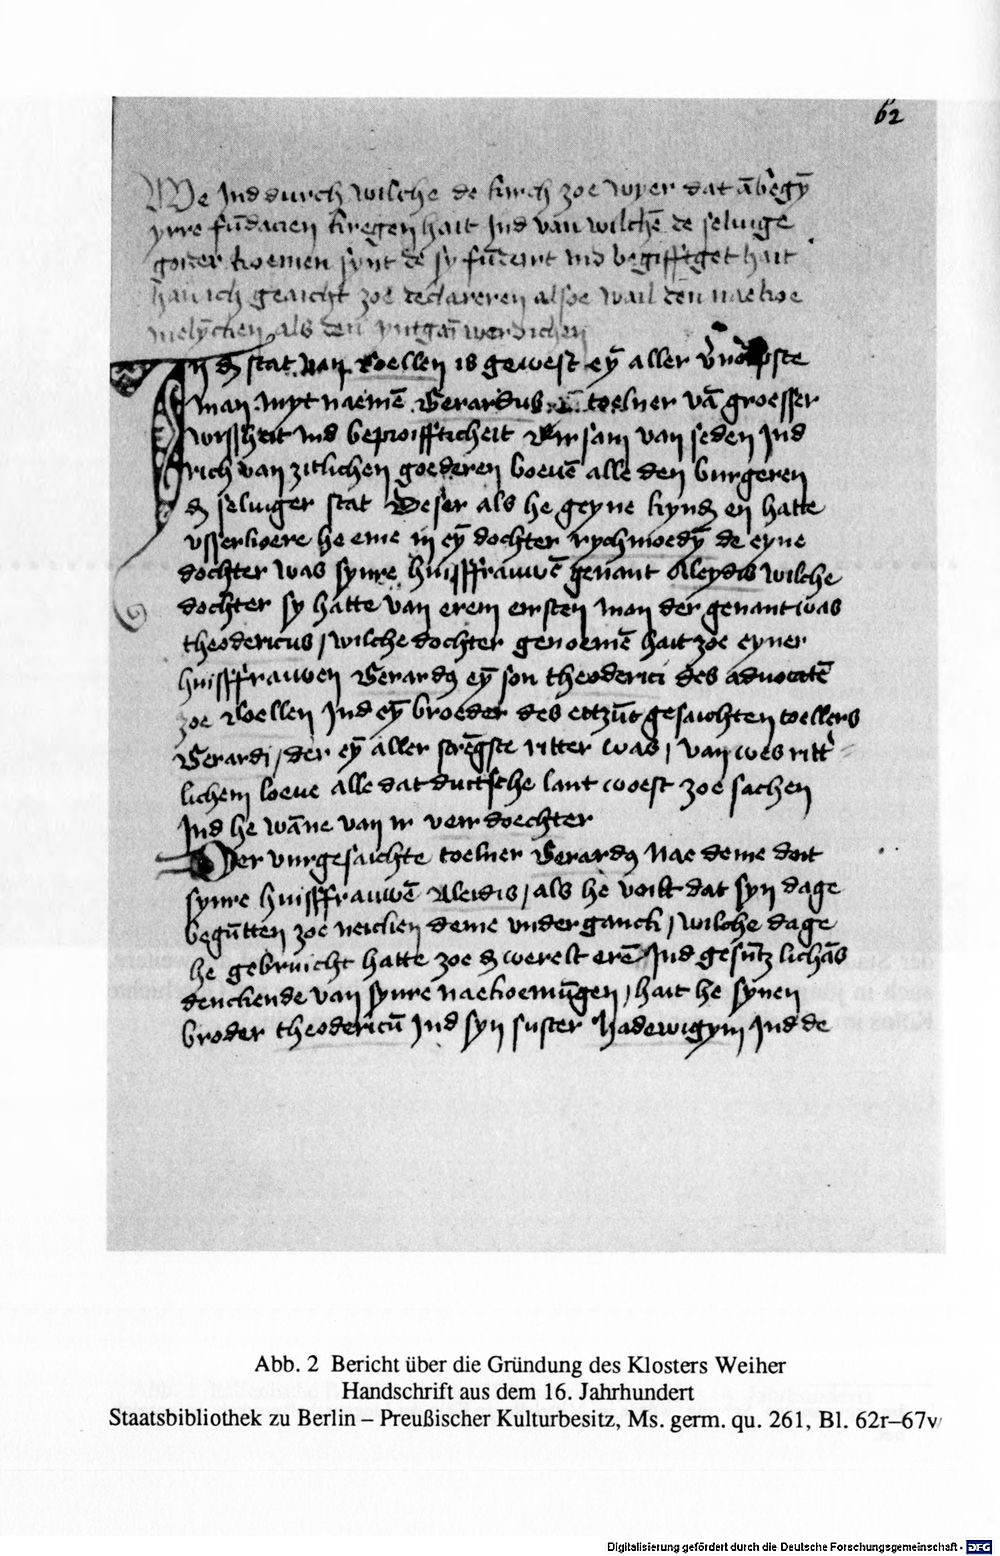 62
We Ind durch wilche de kirch zoe wyer dat ābegȳ
yrre fūdacien kregen hait Ind van wilchē de seluige
goider koemen synt de sy fūdeirt ind begifftget hait
hain ich geaicht zoe declareren alsoe wail den naekoe
melȳchen als den
In der stat van Koellen is gewest eȳ aller
man myt naemē Gerardus toelner vā groesser
wissheit Ind beproifflicheit Eirsam van seden Ind
rich van zitlichen goederen boeuē alle den burgeren
der seluiger stat Deser als he geyne kynder en hatte
vsserkoere he eme in eȳ dochter rychmoedȳ de eyne
dochter was synre huisffrauwē genant Aleydis wilche
dochter sy hatte van erem eirsten man der genant was
theodericus / wilche dochter genoemē hait zoe eyner
huisffrauwen Gerardus eȳ son theoderici des aduocatē
zoe Koellen Ind eȳ broeder des gesaichten toellers
Gerardi / der eȳ aller strēgste ritter was / van wes ritt'
lichem loeue alle dat duitsche lant woest zoe sachen
Ind he wāne van ir veir doechter
Der vurgesaichte toelner Gerardus nae deme doit
synre huisffrauwē Aleidis / als he voilt dat syn dage
begūtten zoe neicken deme vnderganck / wilche dage
he gebruicht hatte zoe der werelt erē Ind gesūtz lichās
denckende van synre naekoemūgen / hait he synen
broder theodericū Ind syn suster hadewigym Ind de
Abb. 2 Bericht über die Gründung des Klosters Weiher
Handschrift aus dem 16. Jahrhundert
Staatsbibliothek zu Berlin – Preußischer Kulturbesitz, Ms. germ. qu. 261, Bl. 62r–67v
Digitalisierung gefördert durch die Deutsche Forschungsgemeinschaft - DFG